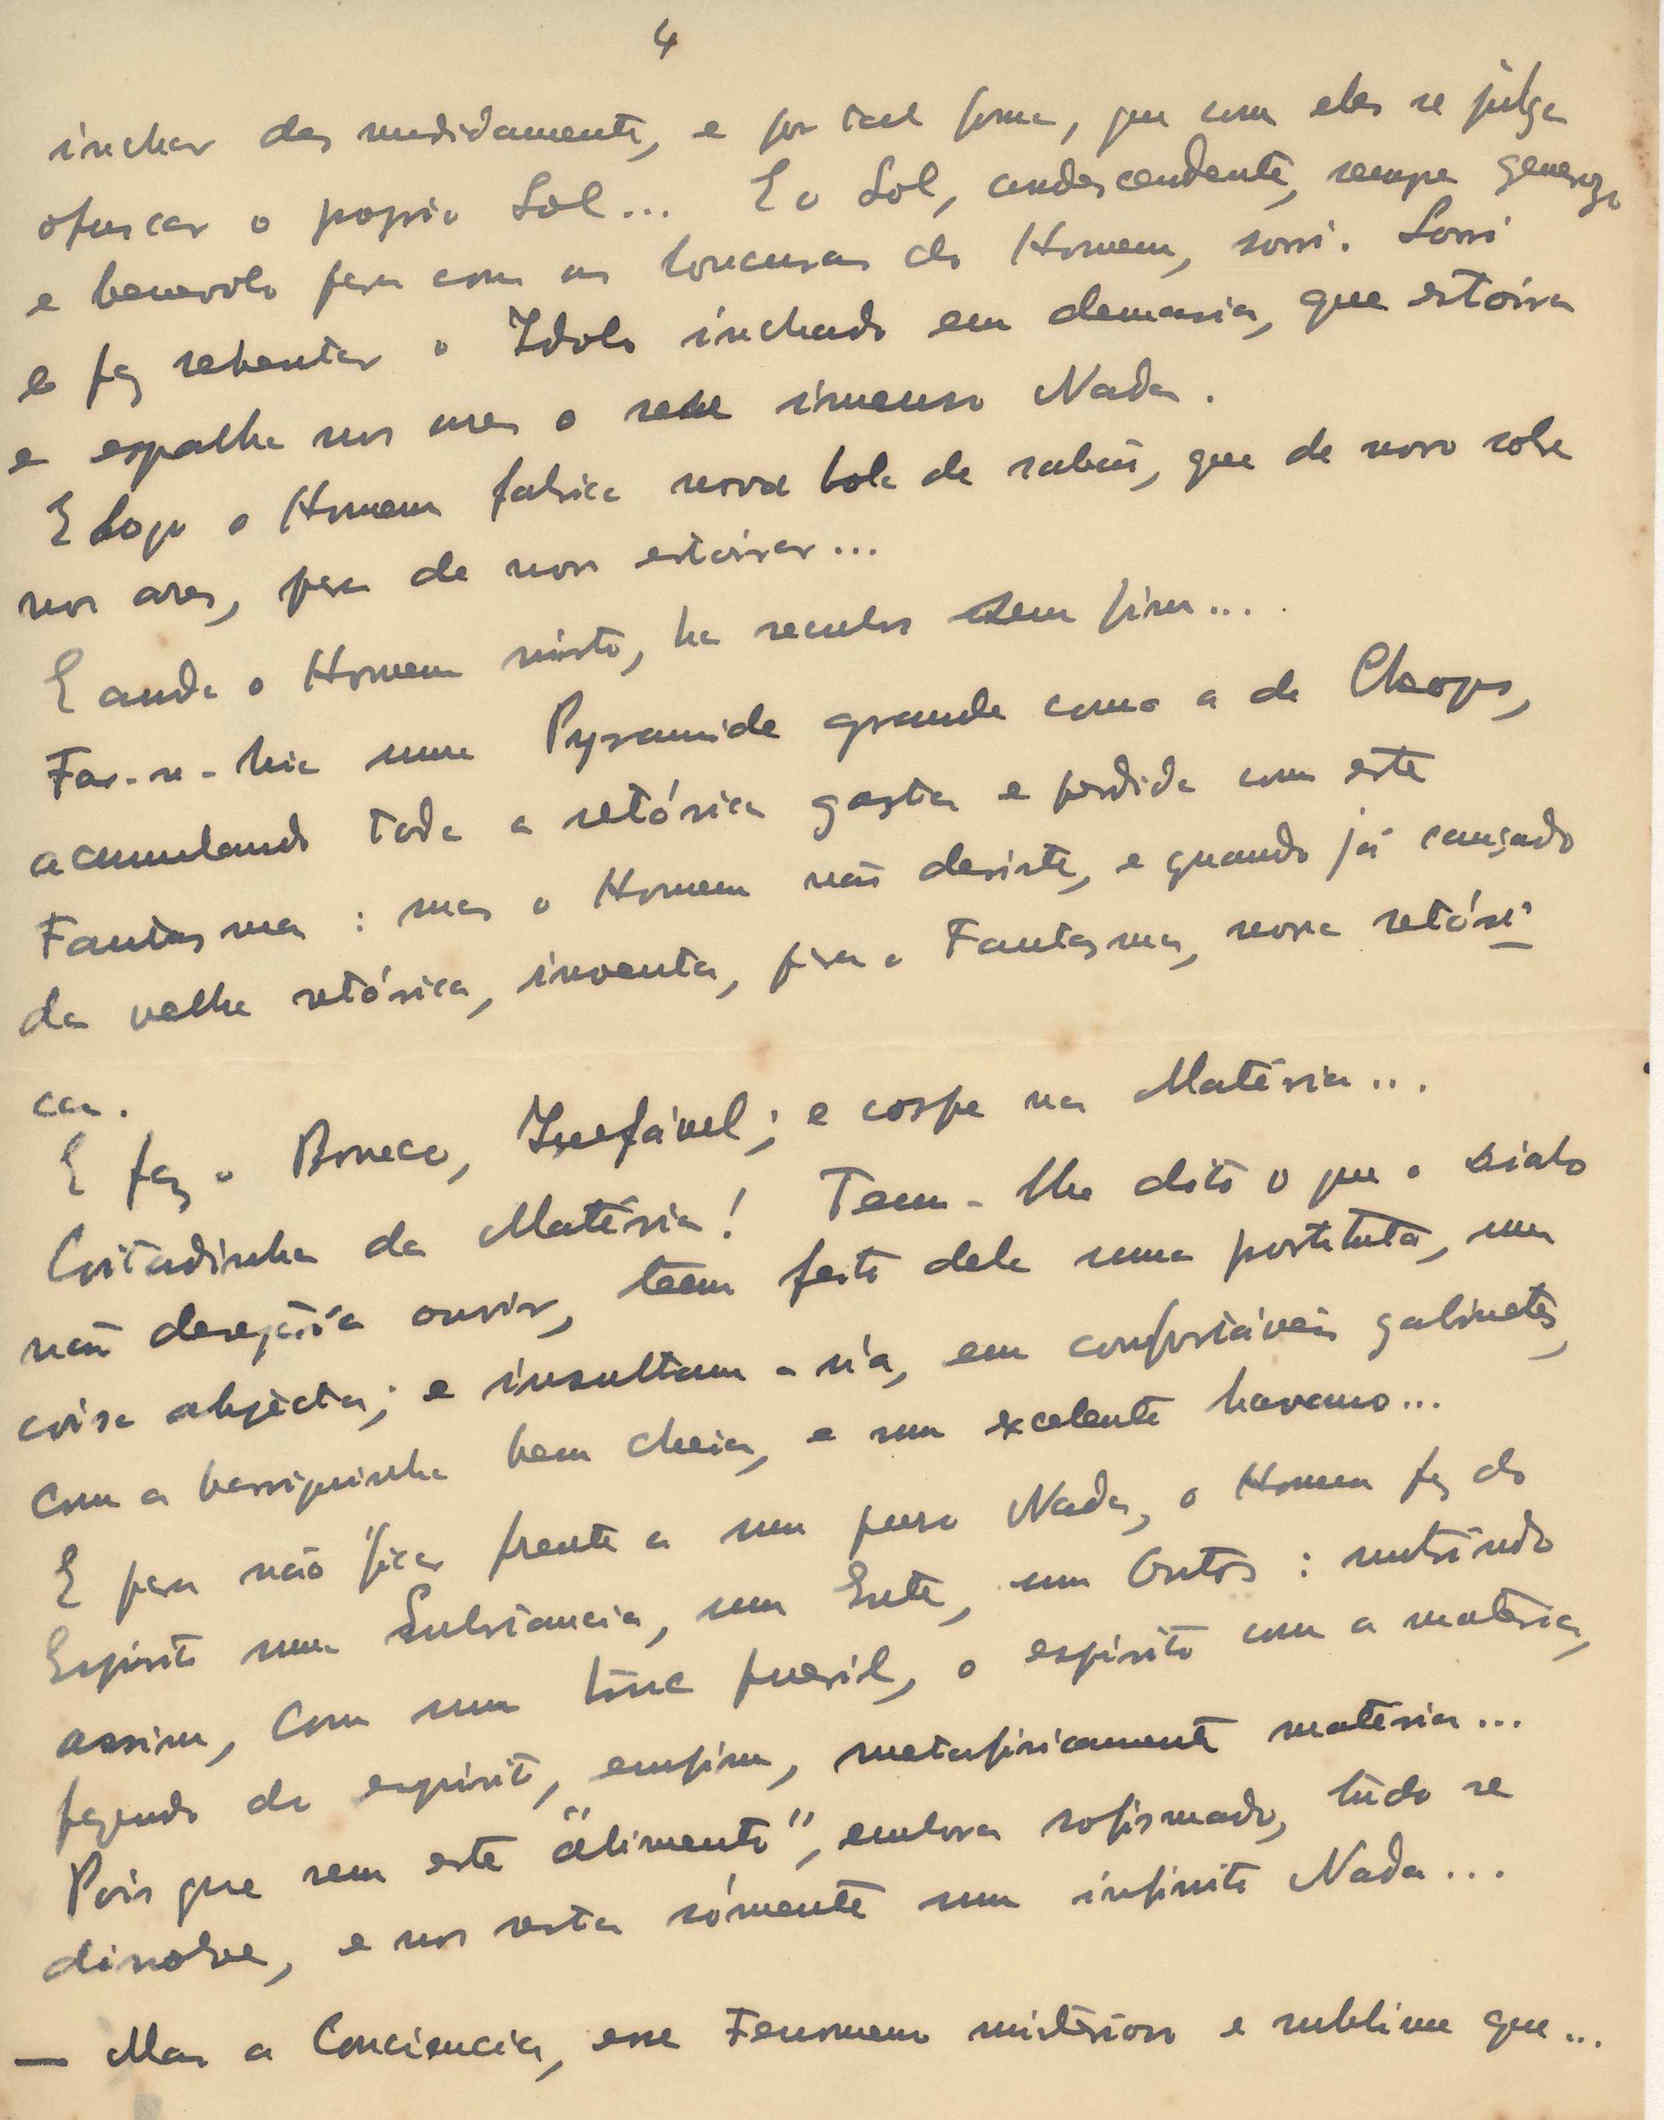 4
inchar desmedidamente, e por tal forma, que com eles se julga
ofuscar o proprio Sol... E o Sol, condescendente, sempre generoso
e benevolo para com as loucuras do Homem, sorri. Sorri
e faz rebentar o Idolo inchado em demasia, que estoira
e espalha nos ares o seu imenso Nada.
E logo o Homem fabrica nova bola de sabão, que de novo sobe
nos ares, para de novo estoirar...
E anda o Homem nisto, ha seculos sem fim...
Far-se-hia uma Pyramide grande como a de Cheops,
acumulando toda a retórica gasta e perdida com este
Fantasma: mas o Homem não desiste, e quando já cançado
da velha retórica, inventa, para o Fantasma, nova retóri-
ca.
E faz o Boneco, Inefável; e cospe na Matéria...
Coitadinha da Matéria! Tem-lhe dito o que o diabo
não desejaria ouvir, teem feito dela uma prostituta, uma
coisa abjecta; e insultam-n'a, em confortáveis gabinetes,
com a barriguinha bem cheia, e um excelente havano...
E para não ficar frente a um puro Nada, o Homem faz do
Espirito uma Substancia, um Ente, um Outro: nutrindo
assim, com um truc pueril, o espirito com a materia,
fazendo do espirito, emfim, metafisicamente materia...
Pois que sem este "alimento", embora sofismado, tudo se
dissolve, e nos resta sómente um infinito Nada...
— Mas a Conciencia, esse Fenomeno misterioso e sublime que...